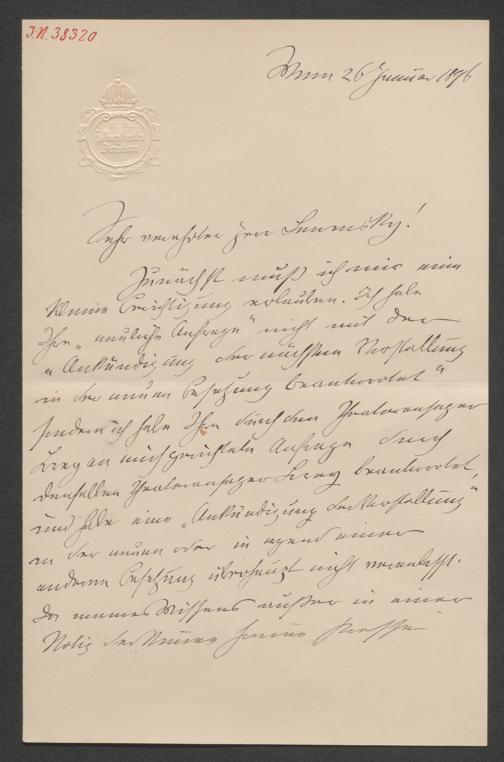 J.N. 38320
Wien 26 Januar 1896
Sehr verehrter Herr
Zunächst muß ich mir eine
kleine Berichtigung erlauben. Ich habe
Ihre „neuliche Anfrage" nicht mit der
„Ankündigung der nächsten Vorstellung
in der neuen Besetzung beantwortet"
sondern ich habe Ihre durch den Theateransager
an mich gerichtete Anfrage durch
denselben Theateransager beantwortet,
und habe eine „Ankündigung der Vorstellung"
in der neuen oder in irgend einer
anderen Besetzung überhaupt nicht veranlasst.
Da meines Wissens außer in einer
Notiz der Neuen Freien Presse